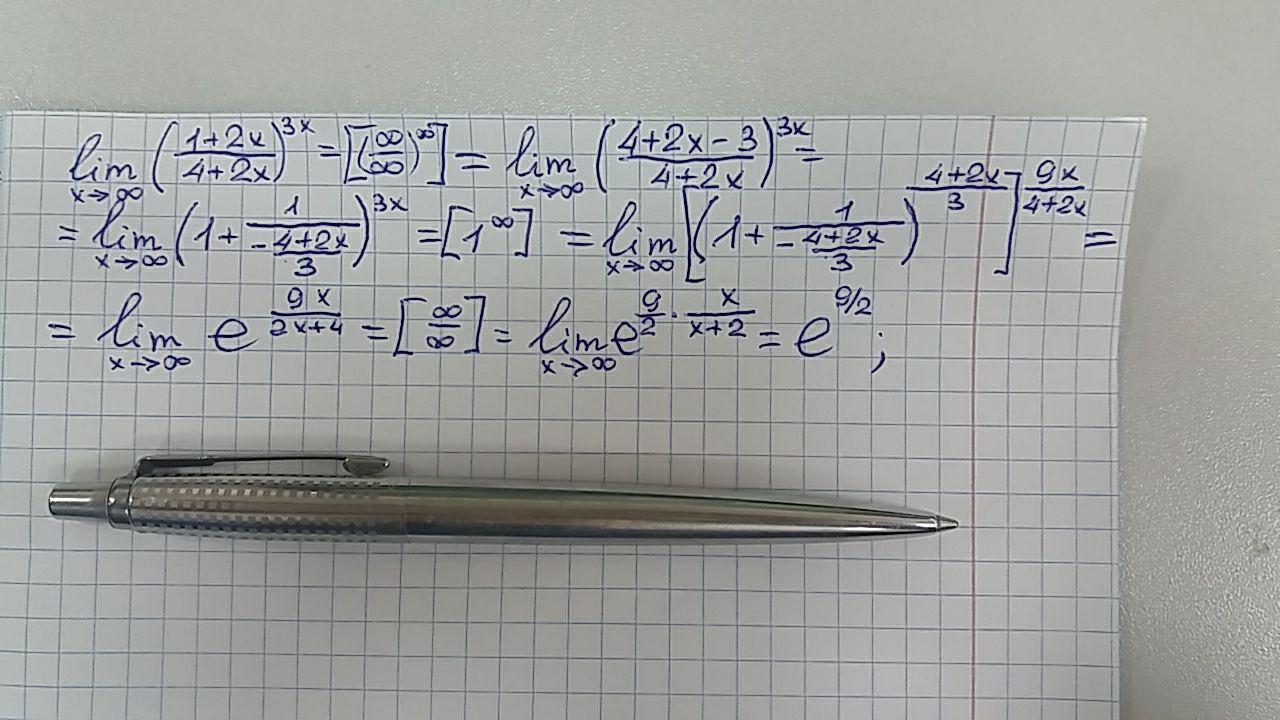 lim x→∞ ((1+2x)/(4+2x))^3x = [(∞/∞)^∞] = lim x→∞ ((4+2x-3)/(4+2x))^3x =
= lim x→∞ (1+1/(-(4+2x)/3))^3x = [1^∞] = lim x→∞ [(1+1/(-(4+2x)/3))^((4+2x)/3)]^(9x/(4+2x)) =
= lim x→∞ e^(9x/(2x+4)) = [∞/∞] = lim x→∞ e^(9/2 · x/(x+2)) = e^(9/2) ;